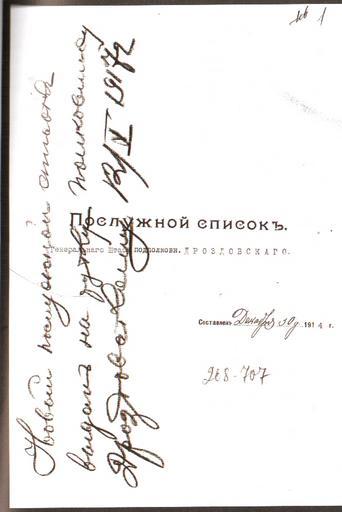 № 1
Новый послужной список
выданъ на руки полковнику
Дроздовскому 12/V 1917 г.
Послужной списокъ.
Генеральнаго Штаба подполковн. ДРОЗДОВСКАГО.
Составленъ Декабря 30 д. 1914 г.
268-707